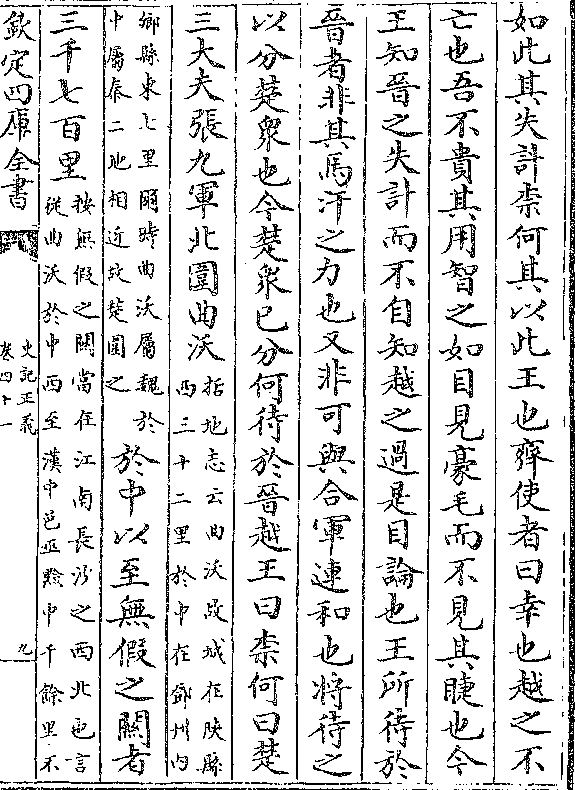 如此其失計柰何其以此王也齊使者曰幸也越之不
亡也吾不貴其用智之如目見豪毛而不見其睫也今
王知晉之失計而不自知越之過是目論也王所待於
晉者非其馬汗之力也又非可與合軍連和也將待之
以分楚衆也今楚衆已分何待於晉越王曰柰何曰楚
三大夫張九軍北圍曲沃
括地志云曲沃故城在陜縣
西三十二里於中在鄧州内
鄉縣東七里爾時曲沃屬魏於
中屬秦二地相近故楚圍之
於中以至無假之關者
三千七百里
按無假之關當在江南長沙之西北也言
從曲沃於中西至漢中邑巫黔中千餘里不
欽定四庫全書
史記正義
卷四十一
九